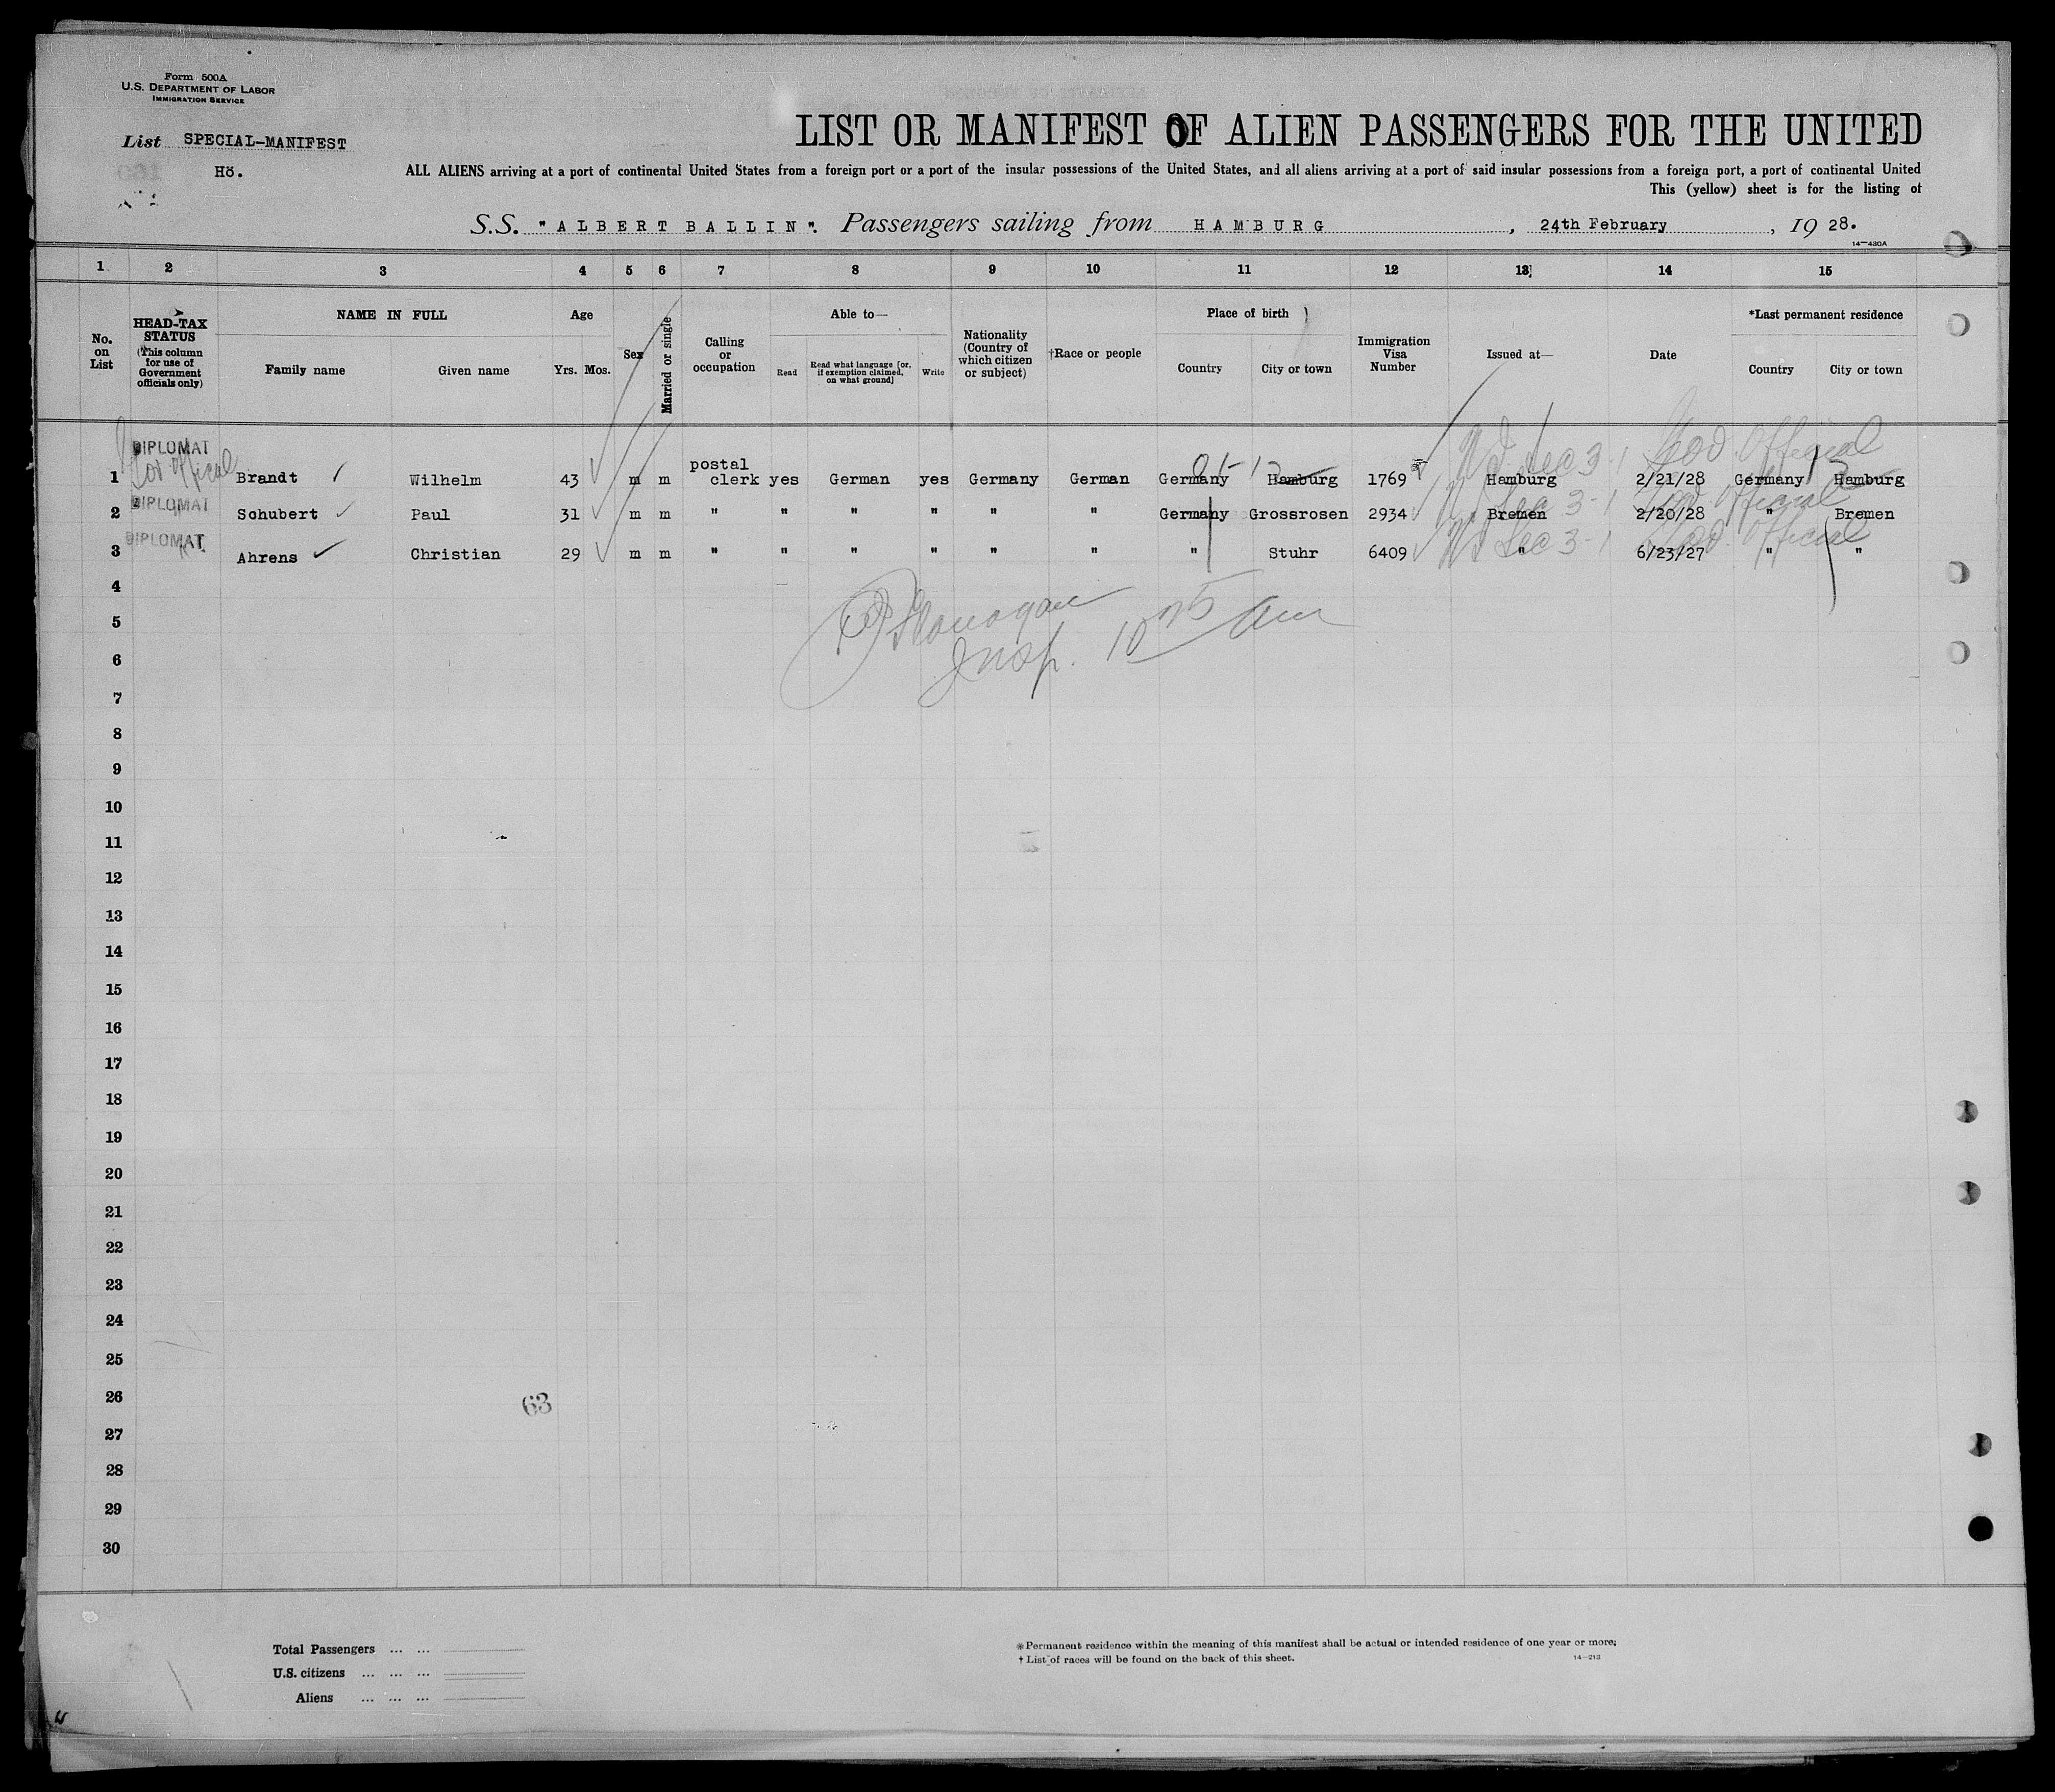 Form 500A
U.S. DEPARTMENT OF LABOR
IMMIGRATION SERVICE
List SPECIAL-MANIFEST
Hö.
LIST OR MANIFEST OF ALIEN PASSENGERS FOR THE UNITED
ALL ALIENS arriving at a port of continental United States from a foreign port or a port of the insular possessions of the United States, and all aliens arriving at a port of said insular possessions from a foreign port, a port of continental United
This (yellow) sheet is for the listing of
S.S. "ALBERT BALLIN". Passengers sailing from HAMBURG, 24th February, 1928.
14—430A
1 2 3 4 5 6 7 8 9 10 11 12 13 14 15
No. on List
HEAD-TAX STATUS (This column for use of Government officials only)
NAME IN FULL
Family name Given name
Age
Yrs. Mos.
Sex
Married or single
Calling or occupation
Able to—
Read Read what language [or, if exemption claimed, on what ground] Write
Nationality (Country of which citizen or subject)
†Race or people
Place of birth
Country City or town
Immigration Visa Number
Issued at—
Date
*Last permanent residence
Country City or town
DIPLOMAT
Gov Official
Sec 3-1 Gov. Official
1 Brandt Wilhelm 43 m m postal clerk yes German yes Germany German Germany Hamburg 1769 Hamburg 2/21/28 Germany Hamburg
DIPLOMAT
Sec 3-1 Gov. Official
2 Schubert Paul 31 m m " " " " " " Germany Grossrosen 2934 Bremen 2/20/28 " Bremen
DIPLOMAT
Sec 3-1 Gov. Official
3 Ahrens Christian 29 m m " " " " " " " Stuhr 6409 " 6/23/27 " "
4
5
Insp. 10 am
6
7
8
9
10
11
12
13
14
15
16
17
18
19
20
21
22
23
24
25
26
63
27
28
29
30
Total Passengers ... ...
U.S. citizens ... ... ...
Aliens ... ... ...
*Permanent residence within the meaning of this manifest shall be actual or intended residence of one year or more.
† List of races will be found on the back of this sheet.
14—213